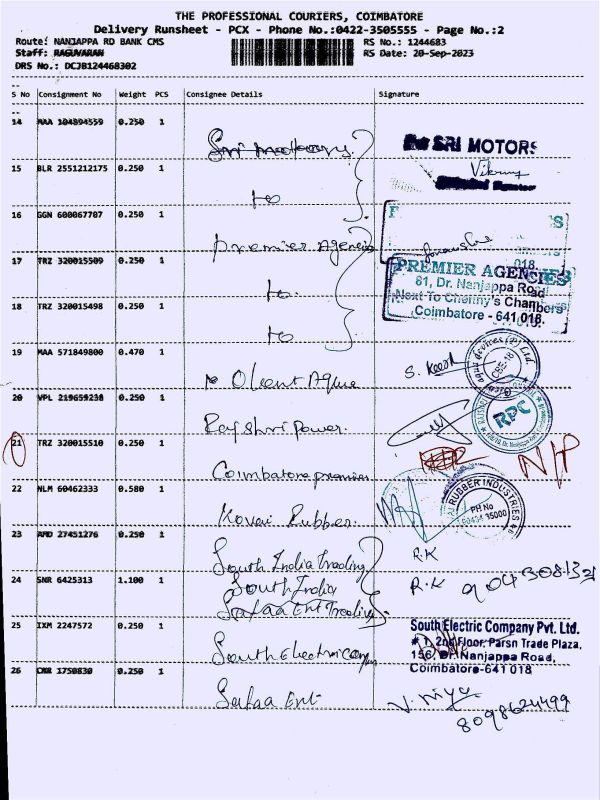 THE PROFESSIONAL COURIERS, COIMBATORE
Delivery Runsheet - PCX - Phone No.:0422-3505555 - Page No.:2
Route: NANJAPPA RD BANK CMS
RS No.: 1244683
Staff: RAGUVARAN
RS Date: 20-Sep-2023
DRS No.: DCJB124468302
S No Consignment No Weight PCS Consignee Details Signature
14 MAA 104894559 0.250 1
Sri Motors
SRI MOTORS
15 BLR 2551212175 0.250 1
to
16 GGN 600067707 0.250 1
Premier Agencies
17 TRZ 320015509 0.250 1
to
PREMIER AGENCIES
81, Dr. Nanjappa Road
Next To Chenny's Chambers
Coimbatore - 641 018.
18 TRZ 320015498 0.250 1
to
19 MAA 571849800 0.470 1
S.
20 VPL 219659238 0.250 1
Rajshri Power.
RPC
21 TRZ 320015510 0.250 1
Coimbatore premier
N/P
22 NLM 60462333 0.580 1
Kovai Rubber.
RUBBER INDUSTRIES
PH No
23 AMD 27451276 0.250 1
South India Trading
R.K
24 SNR 6425313 1.100 1
South India
Safaa Ent Trading
R.K
25 IXM 2247572 0.250 1
South Electric
South Electric Company Pvt. Ltd.
# 1, 2nd Floor, Parsn Trade Plaza,
156, Dr. Nanjappa Road,
Coimbatore-641 018
26 CNR 1750830 0.250 1
Safaa Ent
8098624499